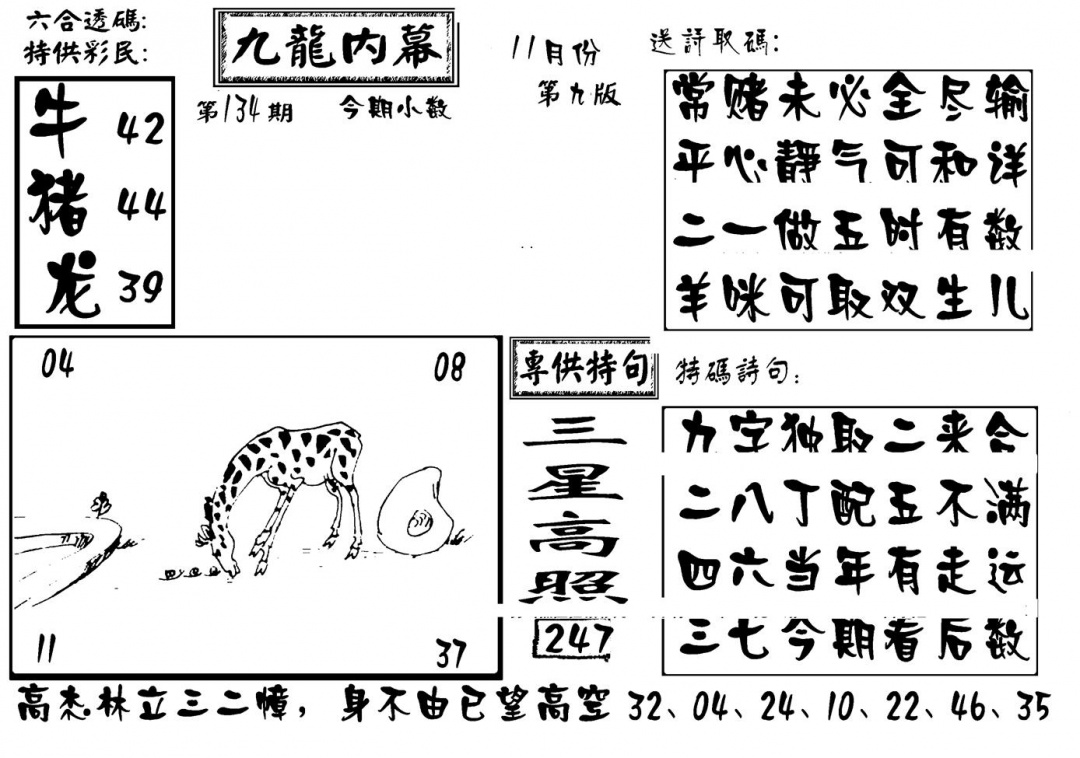 六合透碼:
特供彩民:
九龍内幕
第134期
今期小数
11月份
第九版
牛 42
猪 44
龙 39
送詩取碼:
常赌未必全尽输
平心靜气可和详
二一做五时有数
羊咪可取双生儿
04
08
11
37
專供特句
三星高照
247
特碼詩句:
力字独取二来合
二八丁配五不满
四六当年有走运
三七今期看后数
高杰林立三二幢,身不由已望高空 32、04、24、10、22、46、35